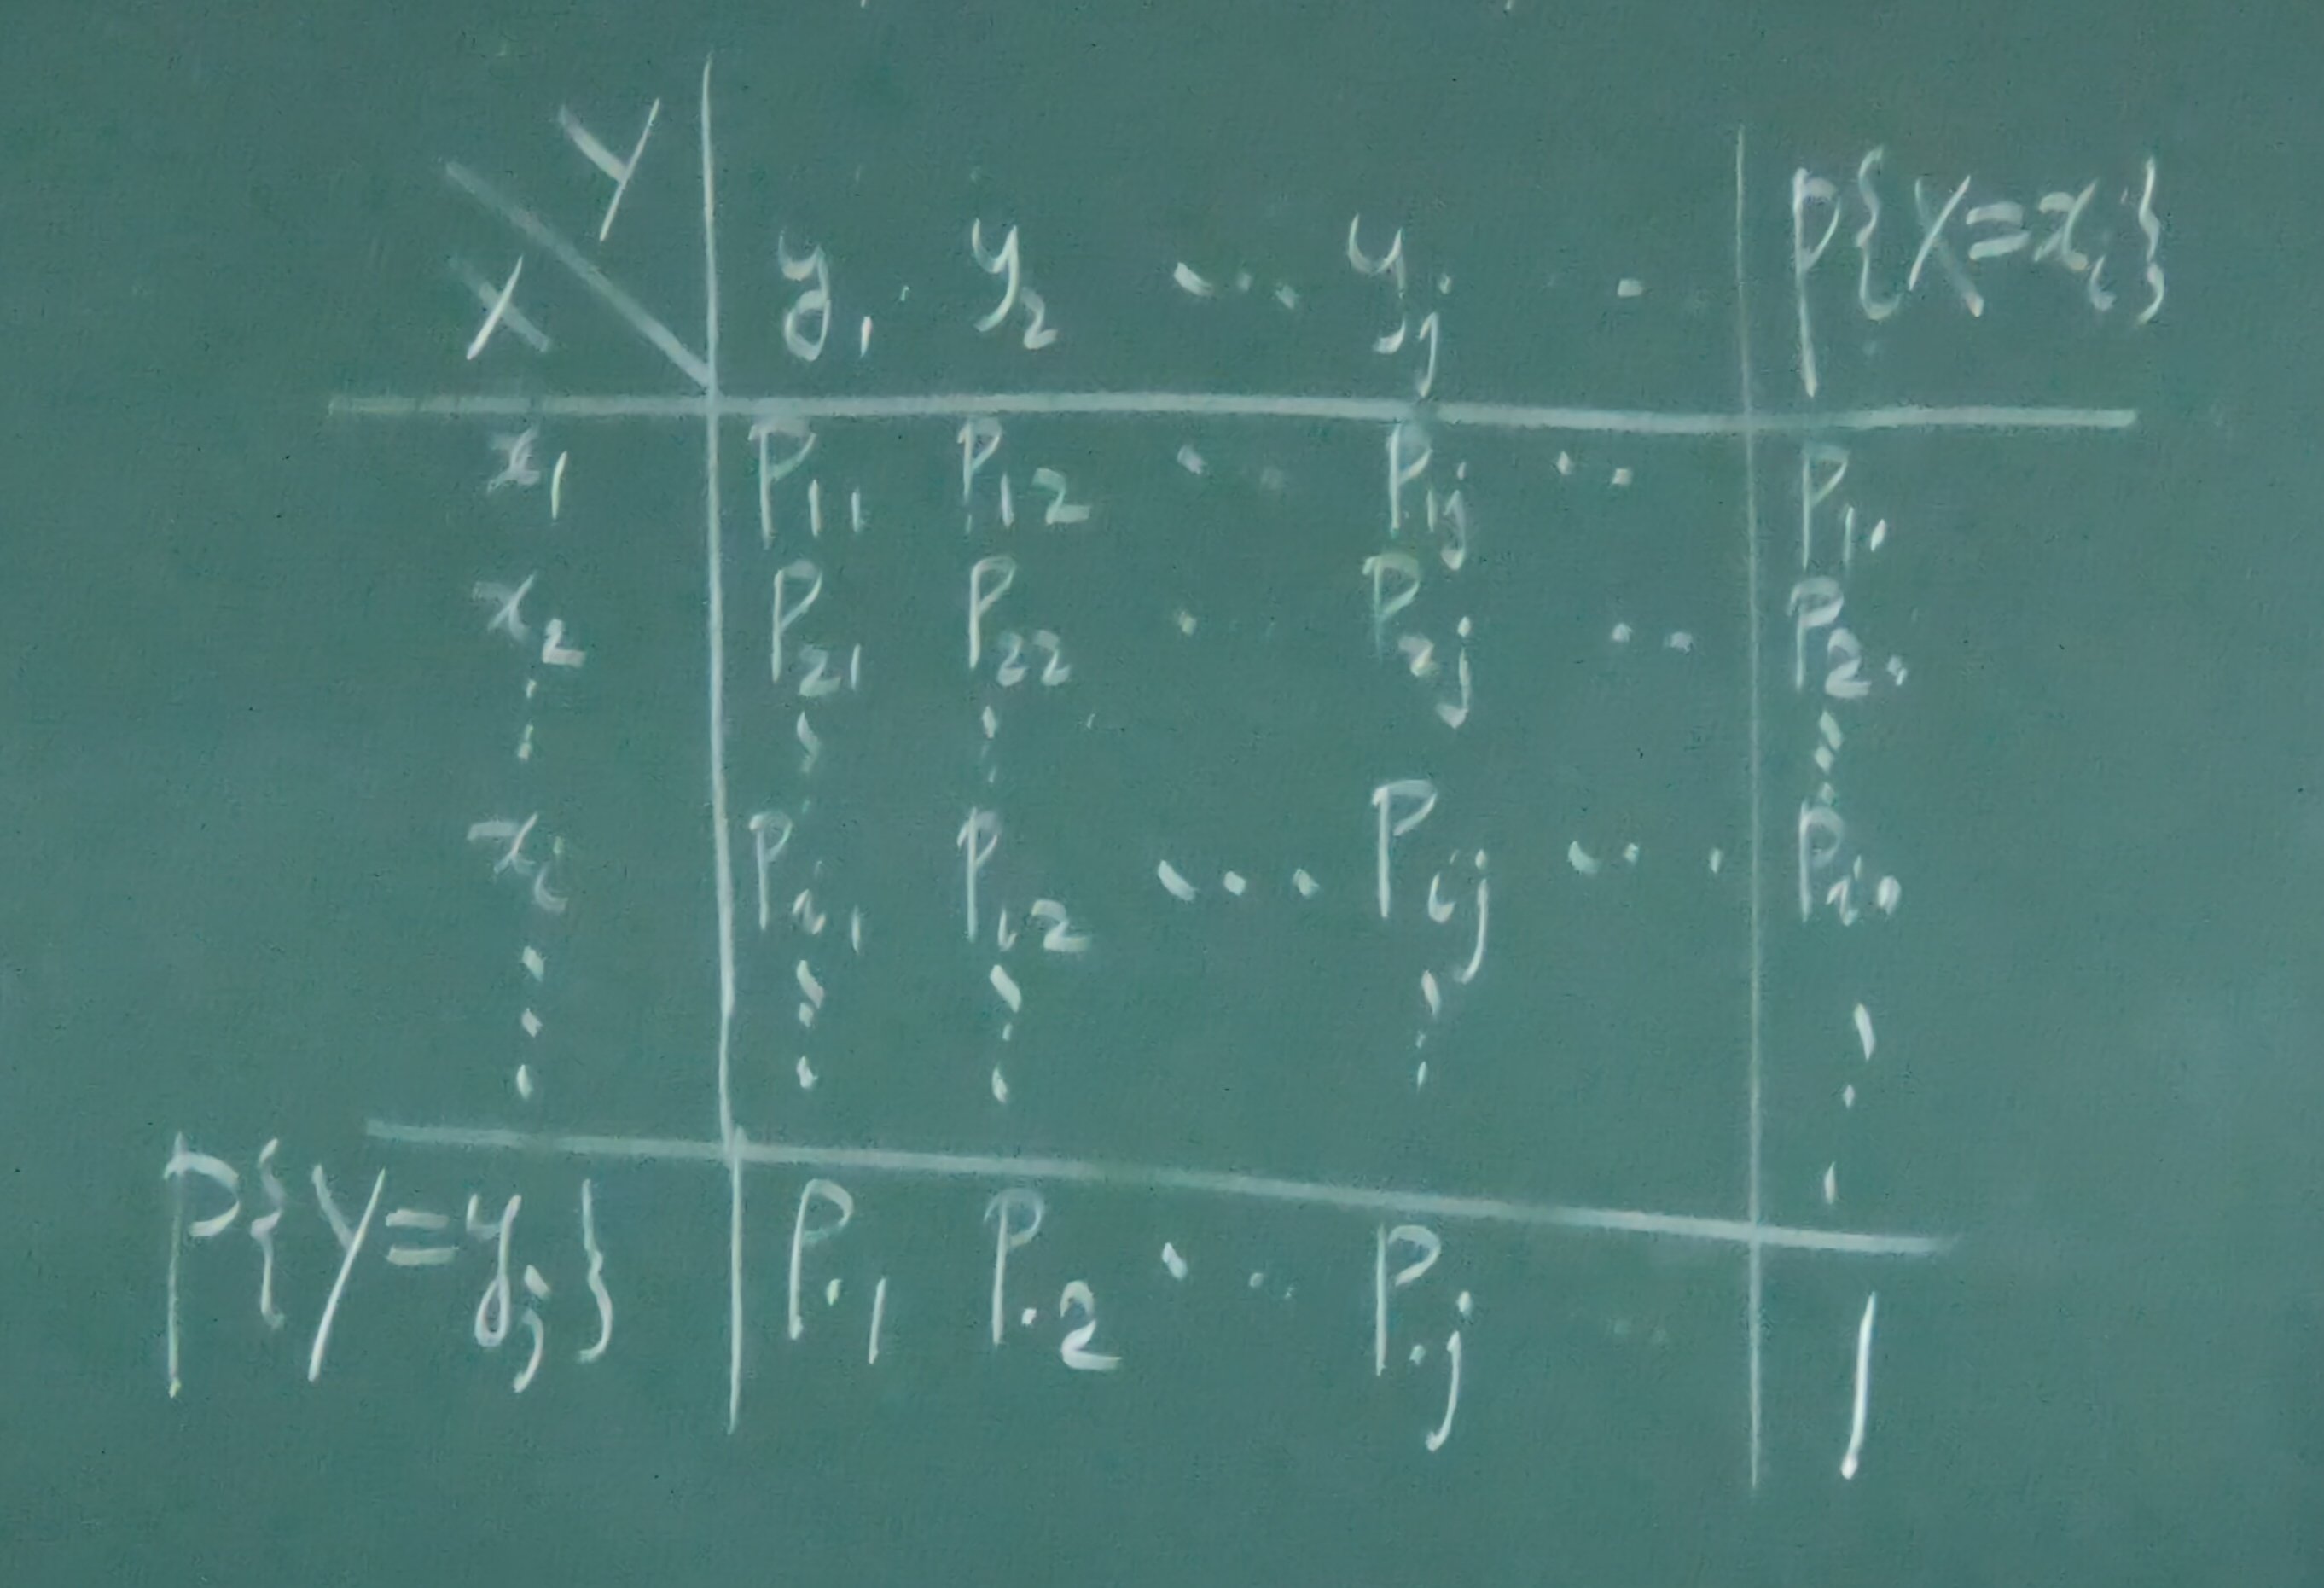 Y
X y₁ y₂ ... yⱼ . P{X=xᵢ}
x₁ P₁₁ P₁₂ .. P₁ⱼ .. P₁.
x₂ P₂₁ P₂₂ . P₂ⱼ .. P₂.
⋮ ⋮ ⋮ ⋮
xᵢ Pᵢ₁ Pᵢ₂ ... Pᵢⱼ ... Pᵢ.
⋮ ⋮ ⋮ ⋮ ⋮
P{Y=yⱼ} P.₁ P.₂ ... P.ⱼ .. 1